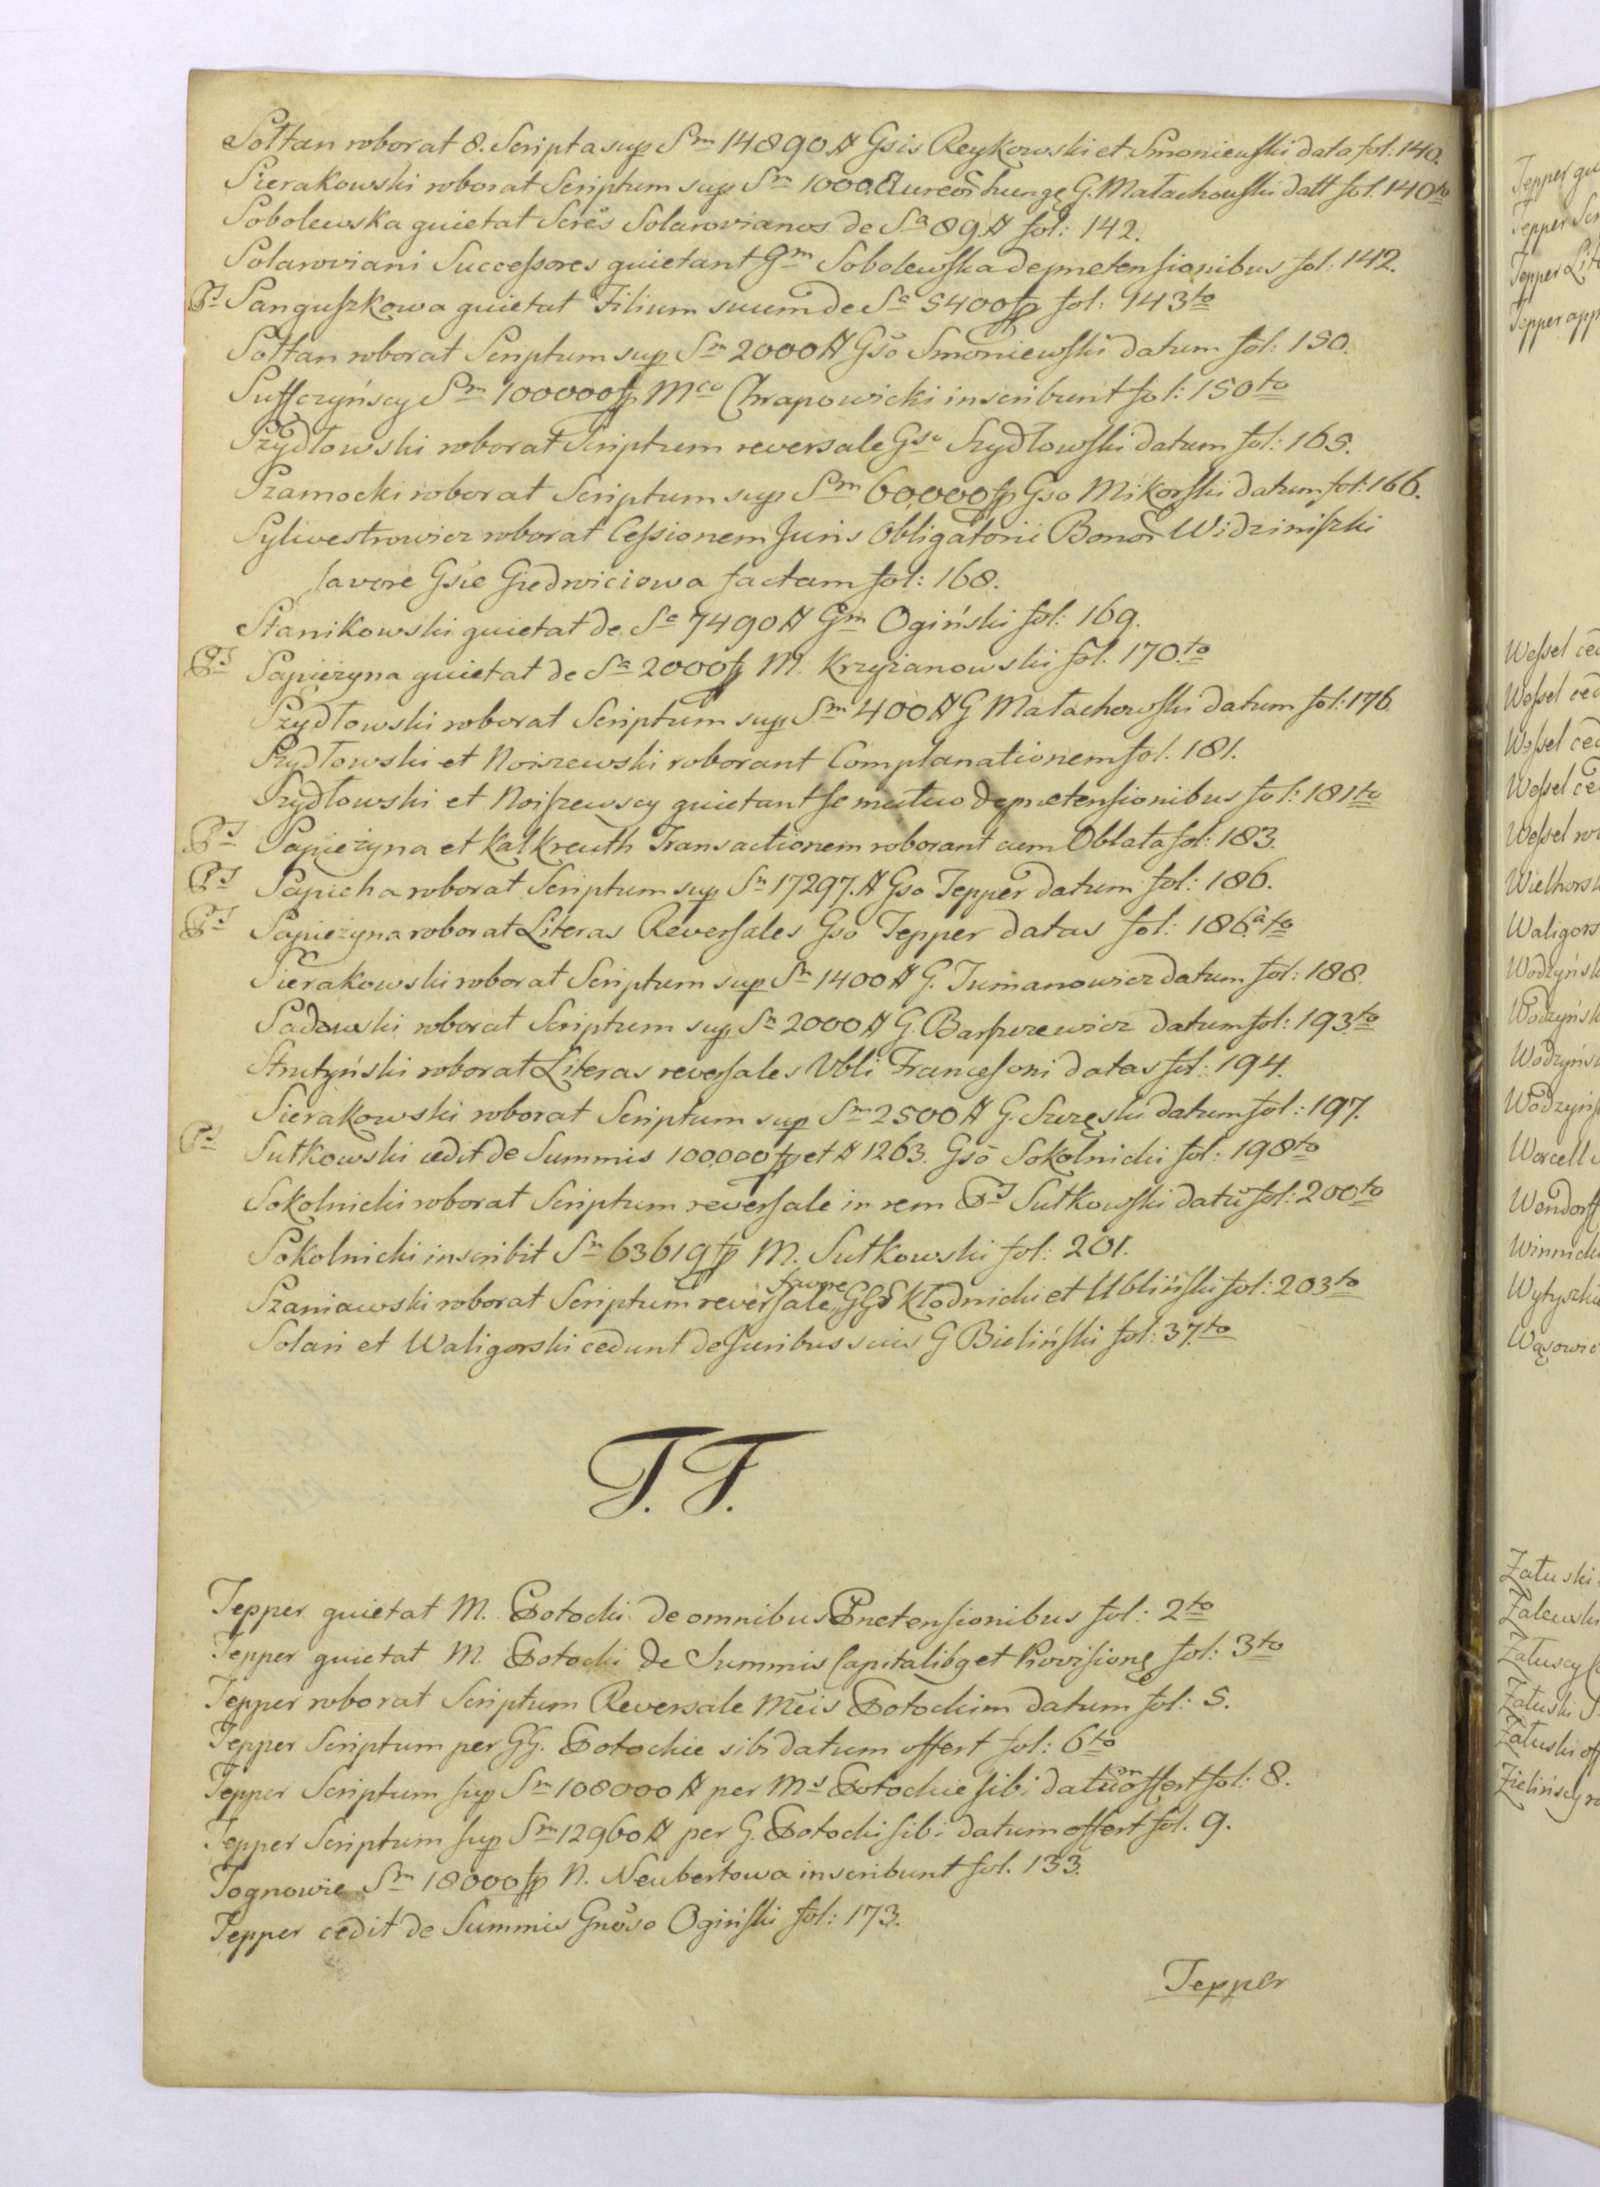 Sołtan roborat 8. Scripta sup Sm 14890 # Gsis Reykowski et Smoniewski data fol: 140.
Sierakowski roborat Scriptum sup Sm 1000. Aureor hung G. Małachowski datt fol. 140to
Sobolewska quietat Scrēs Solarovianos de Sa 89 # fol: 142.
Solaroviani Successores quietant Gm Sobolewska de prnetensionibus fol: 142.
PJ Sanguszkowa quietat Filium suum de Sa 5400 fp fol: 143to
Sołtan roborat Scriptum sup Sm 2000 # Gso Smoniewski datum fol: 150.
Suffczyńscy Sm 100000 fp Mco Chrapowicki inscribunt fol: 150to
Szydłowski roborat Scriptum reversale Gso Szydłowski datum fol: 165.
Szamocki roborat Scriptum sup Sm 60,000 fp Gso Mikorski datum fol: 166.
Sylwestrowicz roborat Cessionem Juris Obligatorii Bonor Widziniszki
favore Gsie Giedroiciowa factam fol: 168.
Stanikowski quietat de Sa 7490 # Gm Ogiński fol: 169.
PJ Sapieżyna quietat de Sa 2000 fp M. Krzyżanowski fol. 170.to
Szydłowski roborat Scriptum sup Sm 400 # G Małachowski datum fol: 176
Szydłowski et Noiszewski roborant Complanationem fol. 181.
Szydłowski et Noiszewscy quietant se mutuo de prnetensionibus fol: 181to
PJ Sapieżyna et Kalkreuth Transactionem roborant cum Oblata fol: 183.
PJ Sapieha roborat Scriptum sup Sm 17297. # Gso Tepper datum fol: 186.
PJ Sapieżyna roborat Literas Reversales Gso Tepper datas fol: 186.a to
Sierakowski roborat Scriptum sup Sm 1400 # G. Tumanowicz datum fol: 188.
Sadowski roborat Scriptum sup Sm 2000 # G. Barszczewicz datum fol: 193.to
Strutyński roborat Literas reversales Nbli Francesoni datas fol: 194.
Sierakowski roborat Scriptum sup Sm 2500 # G. datum fol: 197.
PJ Sułkowski cedit de Summis 100,000 fp et # 1263. Gso Sokolnicki fol: 198to
Sokolnicki roborat Scriptum reversale in rem PJ Sułkowski datū fol: 200to
Sokolnicki inscribit Sm 63619 fp M. Sułkowski fol: 201.
Szaniawski roborat Scriptum reversale favore GG Kłodnicki et Ubliński fol: 203to
Solari et Waligorski cedunt de Juribus suis G Bieliński fol: 37.to
T. T.
Tepper quietat M. Potocki de omnibus Prnetensionibus fol: 2to
Tepper quietat M. Potocki de Summis Capitalibq et Provisione fol: 3to
Tepper roborat Scriptum Reversale Mcis Potockim datum fol: 5.
Tepper Scriptum per GG. Potockie sibi datum offert fol: 6to
Tepper Scriptum sup Sm 108000 # per Ms Potockie sibi datum offert fol: 8.
Tepper Scriptum sup Sm 12960 # per G. Potocki sibi datum offert fol. 9.
Tognowie Sm 18000 fp N. Neubertowa inscribunt fol. 133.
Tepper cedit de Summis Gnoso Ogiński fol: 173.
Tepper
Tepper
Tepper
Tepper
Wessel
Wessel
Wessel
Wessel
Wessel
Wodzyńsk
Wodzyńsk
Worcell
Wendorff
Załuski
Zalewski
Załuscy
Załuski
Załuski
Zielińscy